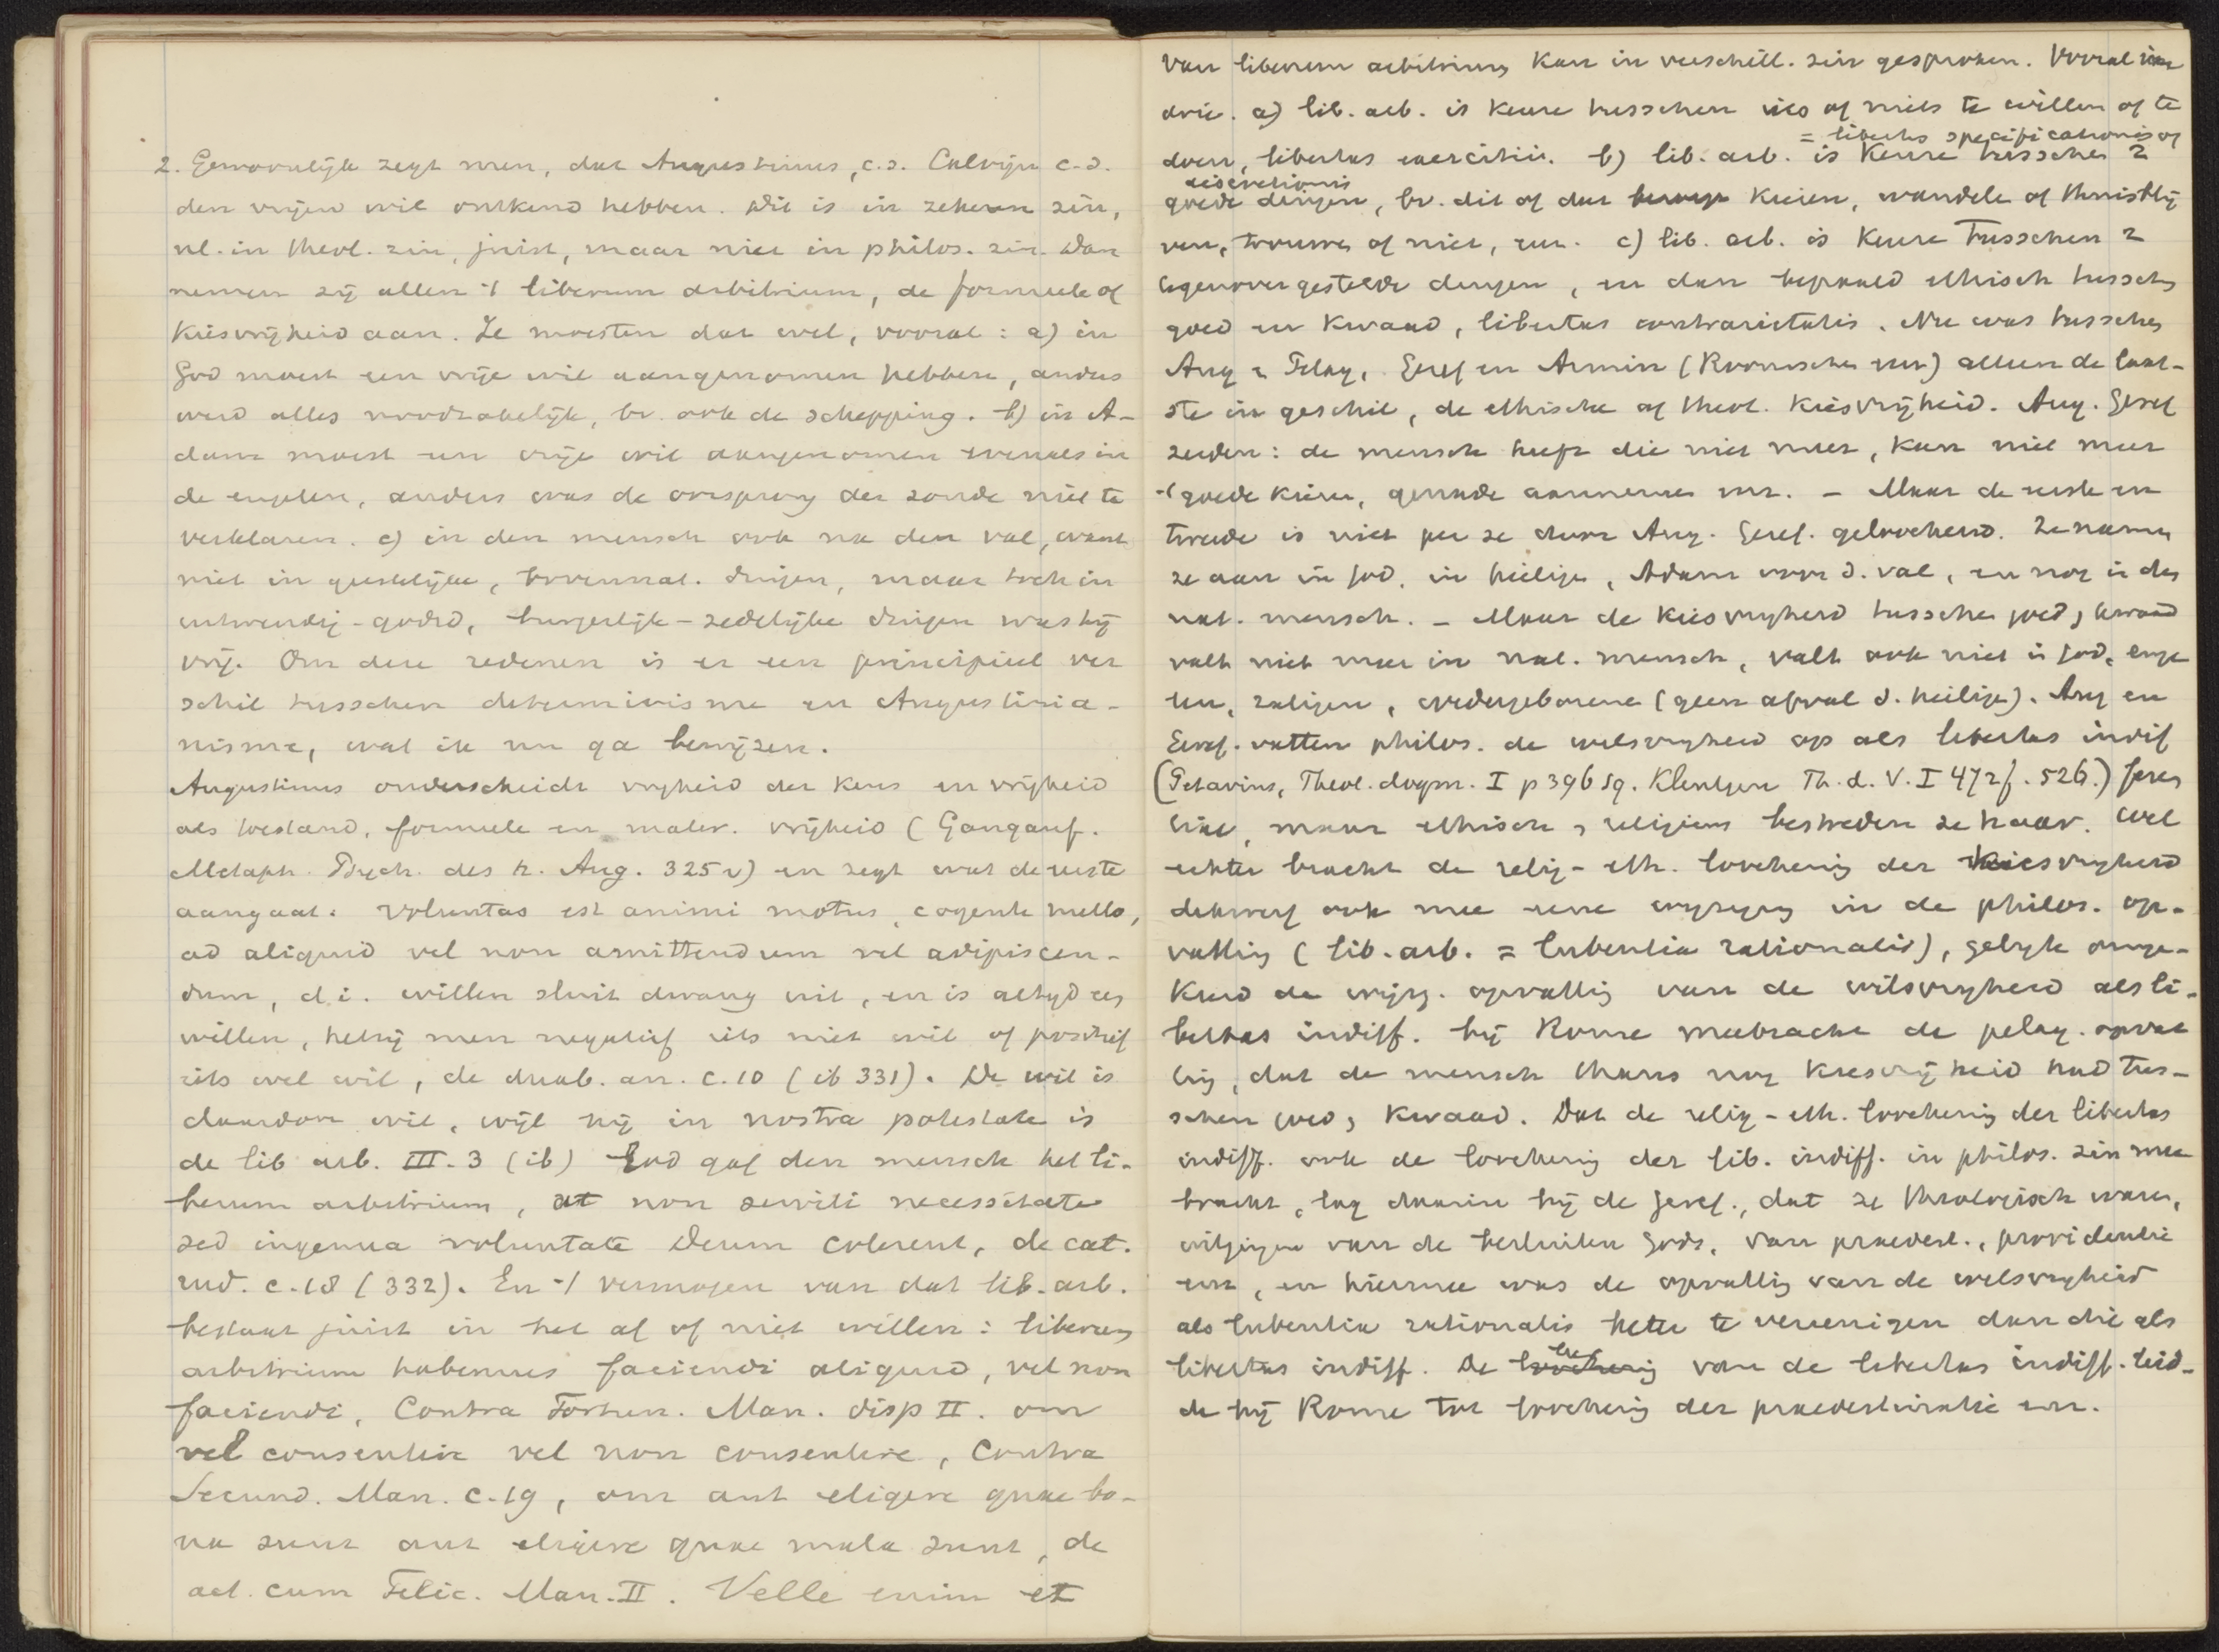 2. Gewoonlijk zegt men, dat Augustinus, c.s. Calvijn c.s.
den vrijen wil ontkend hebben. Dit is in zekeren zin,
nl. in theol. zin, juist, maar niet in philos. zin. Dan
nemen zij allen 't liberum arbitrium, de formeele of
kiesvrijheid aan. Ze moesten dat wel, vooral: a) in
God moest een vrije wil aangenomen hebben, anders
werd alles noodzakelijk, bv. ook de schepping. b) in A-
dam moest een vrije wil aangenomen evenals in
de engelen, anders was de oorsprong der zonde niet te
verklaren. c) in den mensch ook na den val, want
niet in geestelijke, bovennat. dingen, maar toch in
uitwendig-godsd, burgerlijk-zedelijke dingen was hij
vrij. Om deze redenen is er een principieel ver
schil tusschen determinisme en Augustinia-
nisme, wat ik nu ga bewijzen.
Augustinus onderscheidt vrijheid der keus en vrijheid
als toestand, formeele en mater. vrijheid (Gangauf.
Metaph. Psych. des h. Aug. 325 v) en zegt wat de eerste
aangaat: voluntas est animi motus, cogente nullo,
ad aliquid vel non amittendum vel adipiscen-
dum, d.i. willen sluit dwang uit, en is altijd
willen, hetzij men negatief iets niet wil of positief
iets wel wil, de duab. an. c. 10 (ib 331). De wil is
daardoor wil, wijl hij in nostra potestate is
de lib arb. III. 3 (ib) God gaf den mensch het li-
berum arbitrium, ut non servili necessitate
sed ingenua voluntate Deum colerent, de cat.
rud. c. 18 (332). En 't vermogen van dat lib. arb.
bestaat juist in het al of niet willen: liberum
arbitrium habemus faciendi aliquid, vel non
faciendi, Contra Fortun. Man. disp II. om
vel consentire vel non consentire, Contra
Secund. Man. c. 19, om aut eligere quae bo-
na sunt aut eligere quae mala sunt, de
act. cum Felic. Man. II. Velle enim et
Van liberum arbitrium kan in verschill. zin gesproken. Vooral
drie. a) lib. arb. is keuze tusschen iets of niets te willen of te
= libertas specificationis of
doen, libertas exercitii. b) lib. arb. is keuze tusschen 2
discretionis
goede dingen, bv. dit of dat kiezen, wandele of thuisblij
ven, trouwen of niet, enz. c) lib. arb. is keuze tusschen 2
tegenovergestelde dingen, en dan bepaald ethisch tusschen
goed en kwaad, libertas contrarietatis. Nu was tusschen
Aug & Pelag, Geref en Armin (Roomschen enz) alleen de laat-
ste in geschil, de ethische of theol. kiesvrijheid. Aug. Geref
zeiden: de mensch heeft die niet meer, kan niet meer
't goede kiezen, genade aannemen enz. - Maar de eerste en
tweede is niet per se door Aug. Geref. geloochend. Ze namen
ze aan in God, in heilige, Adam voor d. val, en nog in den
nat. mensch. - Maar de kiesvrijheid tusschen goed, kwaad
valt niet meer in nat. mensch, valt ook niet in God, enge
len, zaligen, wedergeborene (geen afval d. heilige). Aug en
Geref. vatten philos. de wilsvrijheid op als libertas indif
(Petavius, Theol. dogm. I p 396 sq. Kleutgen Th. d. V. I 472 f. 526.)
maar ethisch, religieus bestreden ze haar. Wel
echter bracht de relig-eth. loochenig der kiesvrijheid
ook mee eene wijziging in de philos. op-
vatting (lib. arb. = lubentia rationalis), gelijk omge-
keerd de wijzig. opvattig van de wilsvrijheid als li-
bertas indiff. bij Rome meebracht de pelag. opvat
tig, dat de mensch thans nog kiesvrijheid had tus-
schen goed, kwaad. Dat de relig-eth. loochenig der libertas
indiff. ook de loochenig der lib. indiff. in philos. zin mee
bracht, lag daarin bij de Geref., dat ze theologisch waren,
uitgingen van de besluiten Gods, van praedest., providentie
enz, en hiermee was de opvattig van de wilsvrijheid
als lubentia rationalis beter te vereenigen dan die als
libertas indiff. De van de libertas indiff. leid-
de bij Rome tot loochenig der praedestinatie enz.